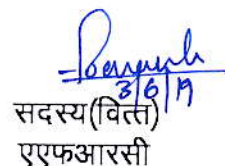 3/6/19
सदस्य(वित्त)
एएफआरसी